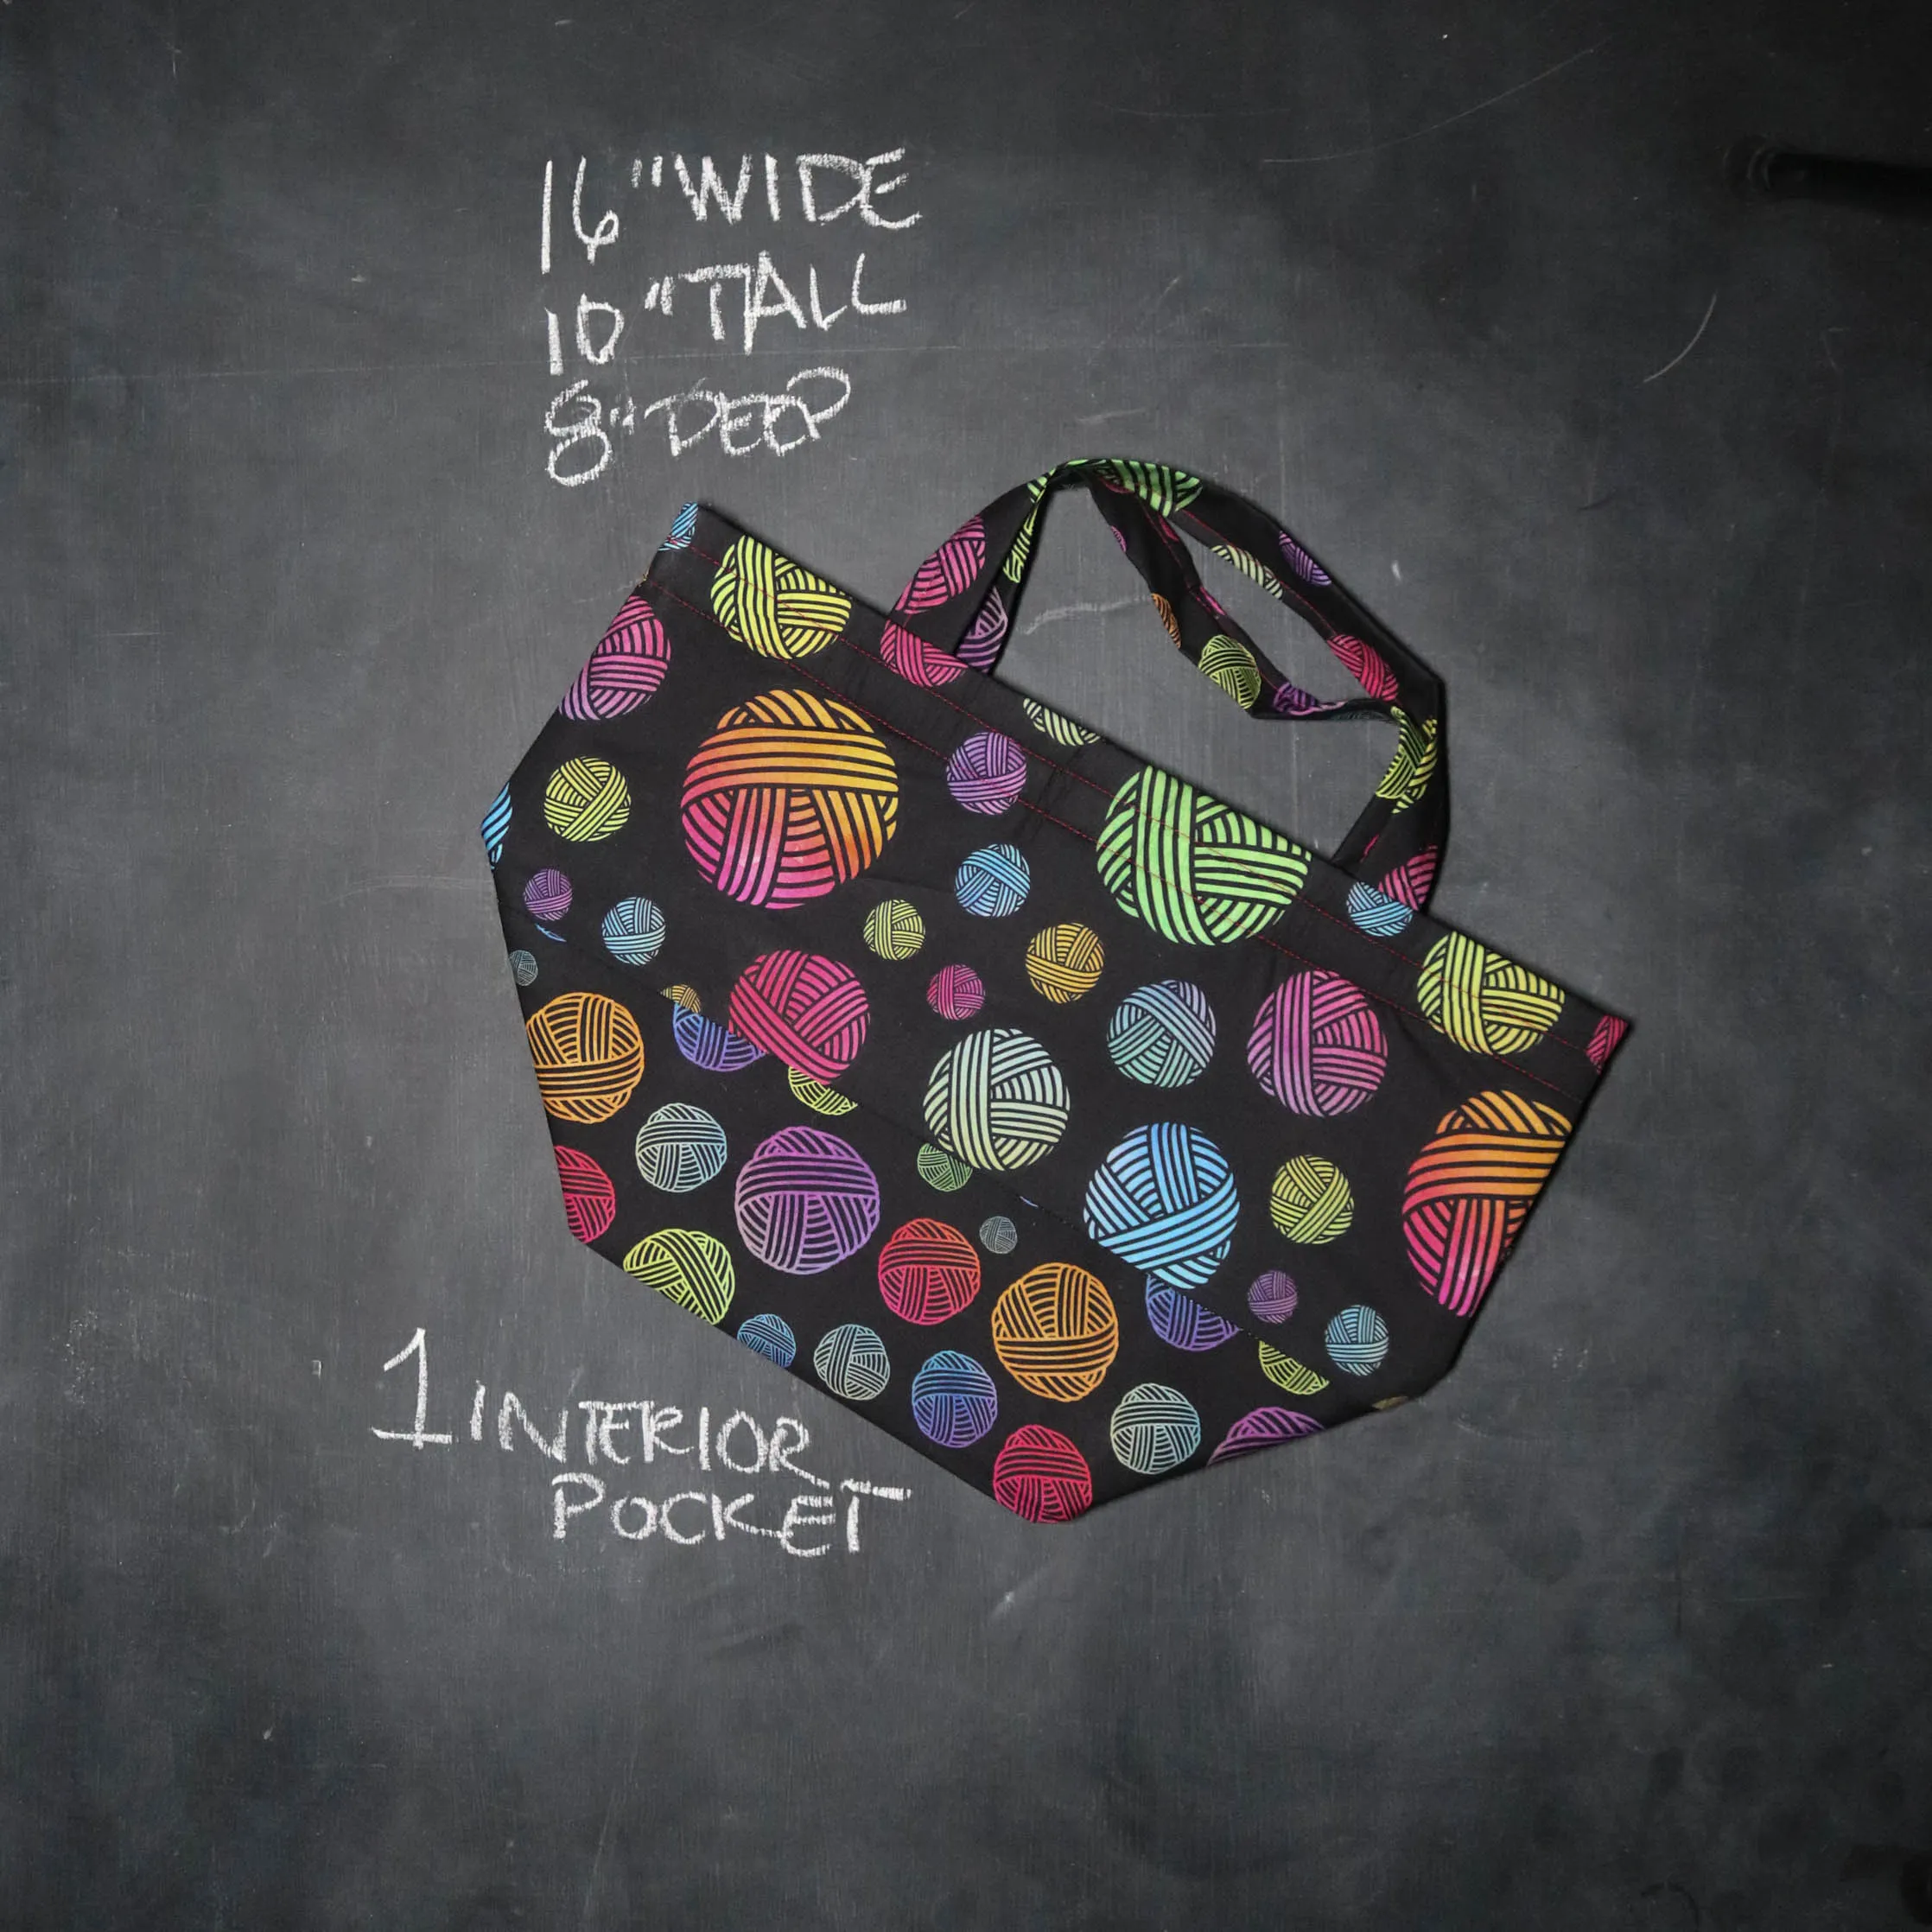 16" WIDE
10" TALL
8" DEEP
1 INTERIOR
POCKET